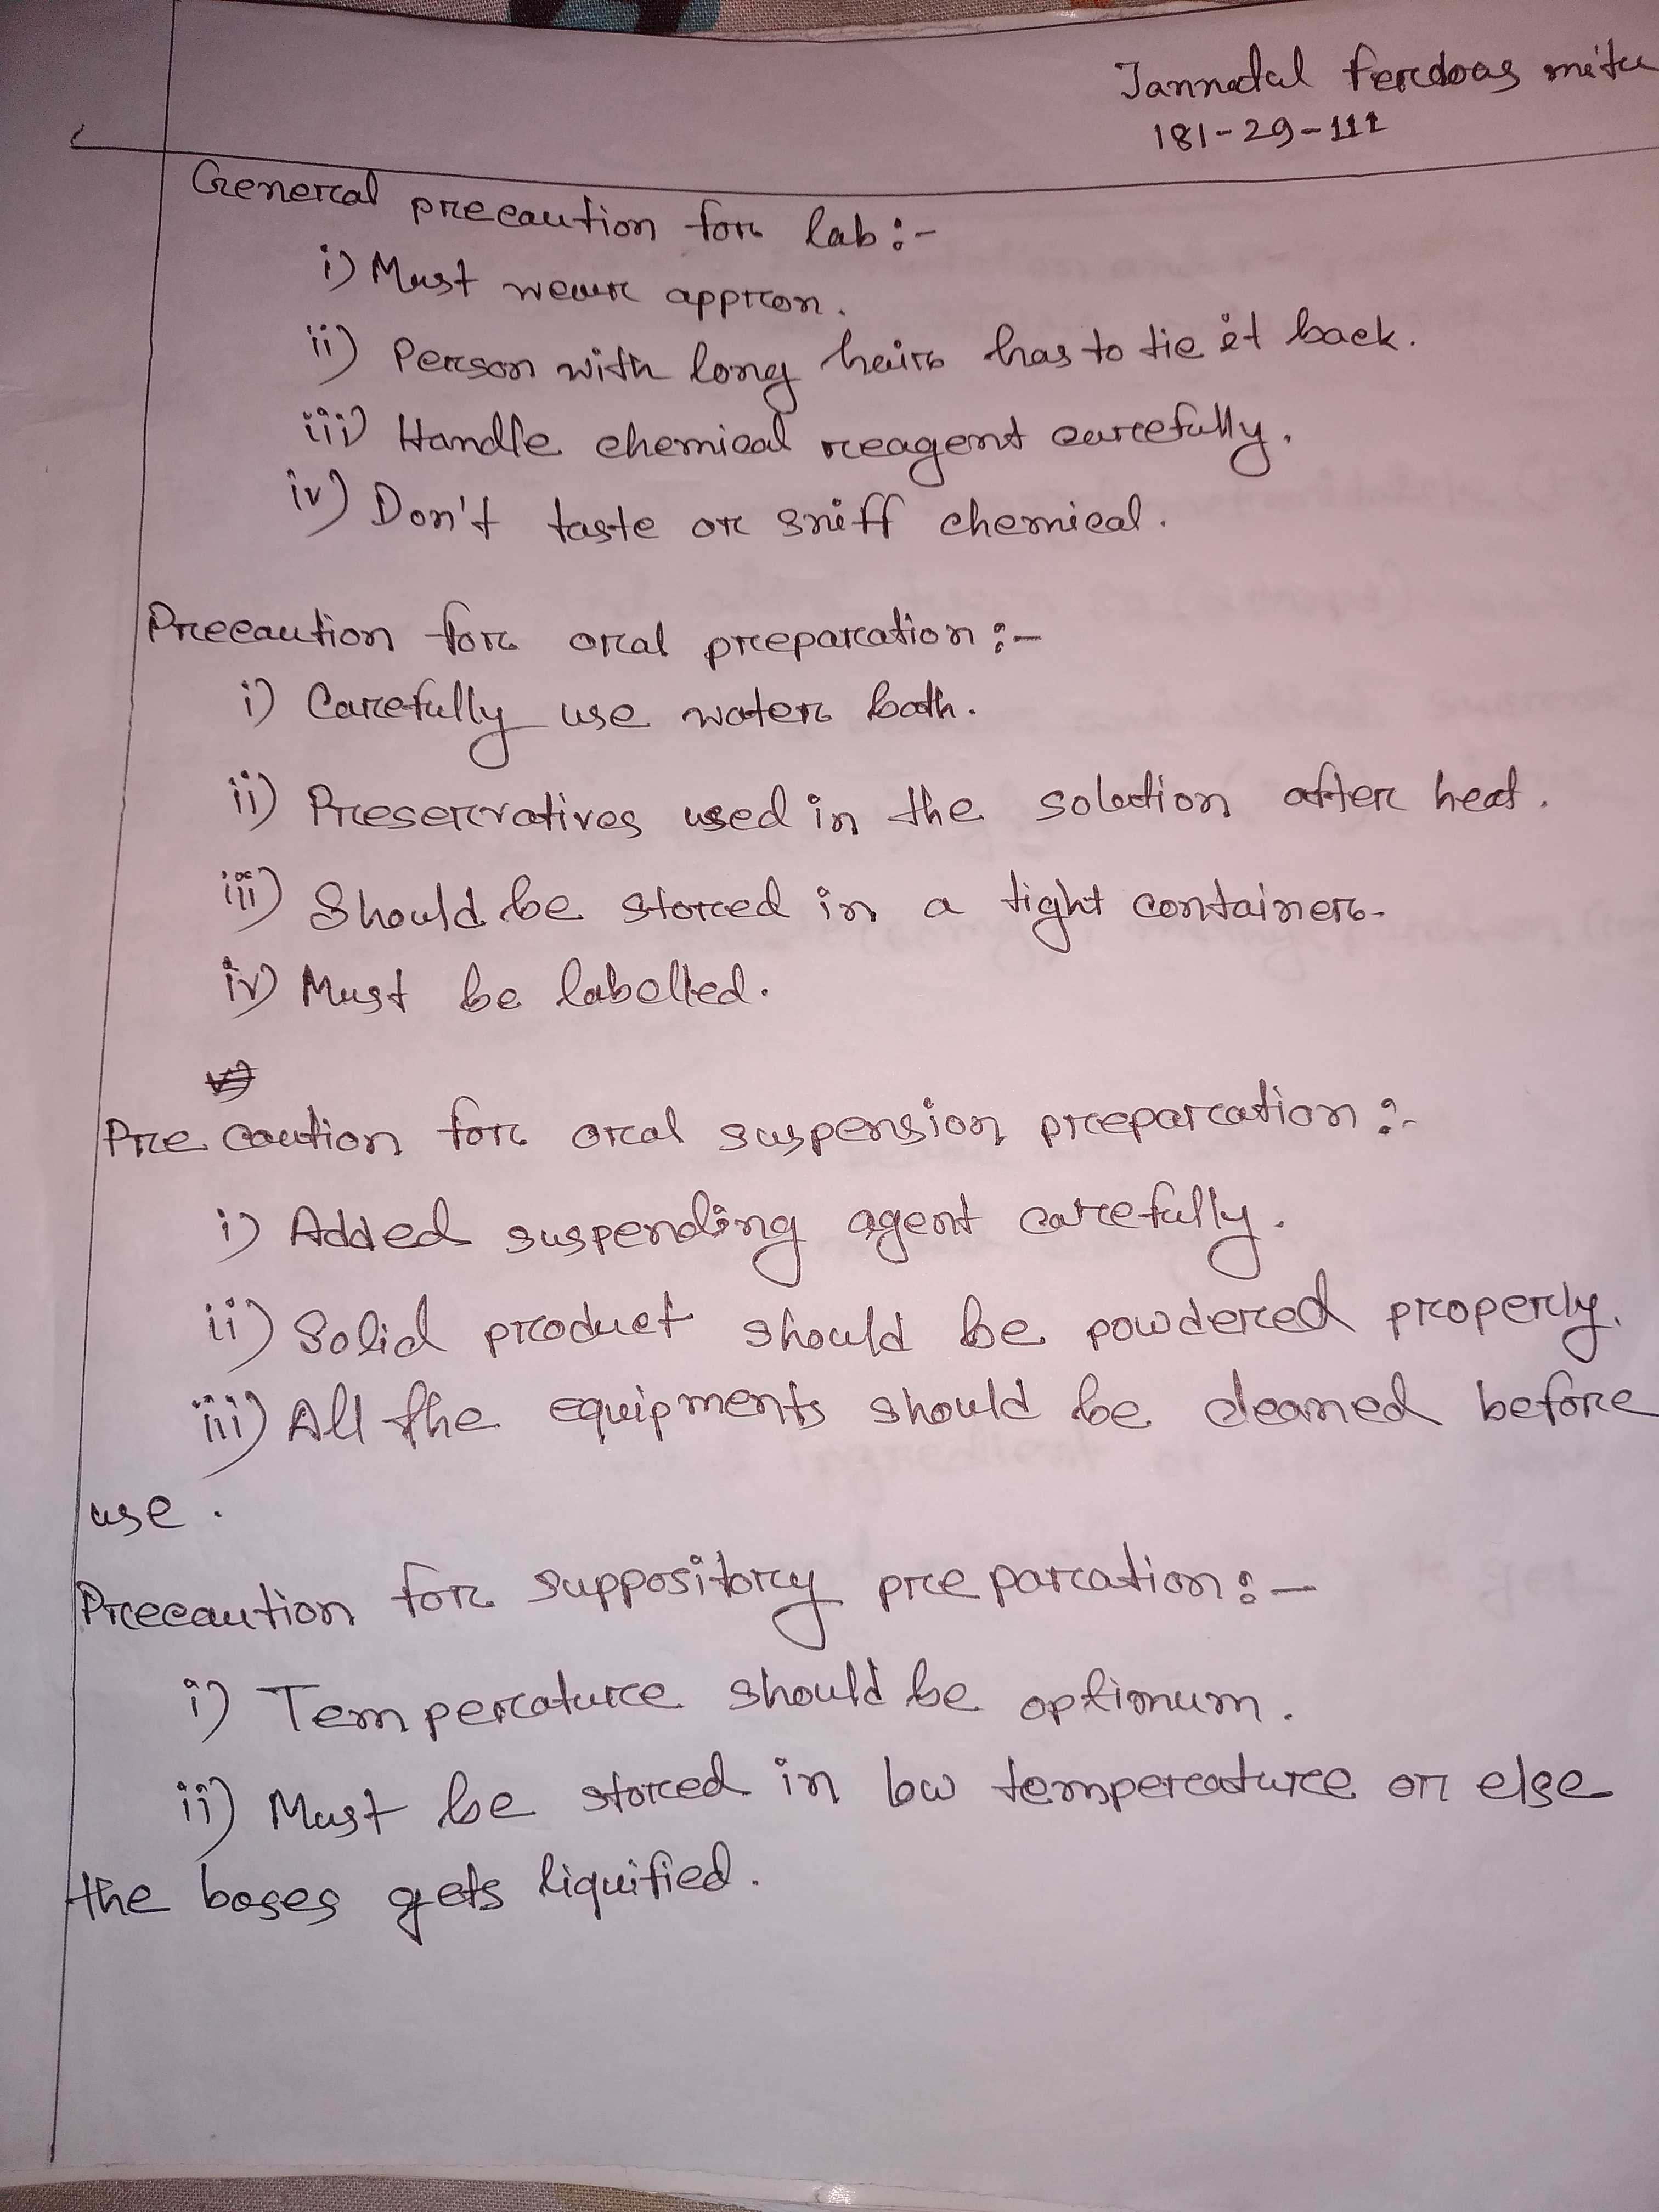 Jannatul ferdoas mitu
181-29-111
General precaution for lab:-
i) Must wear appron.
ii) Person with long hair has to tie it back.
iii) Handle chemical reagent carefully.
iv) Don't taste or sniff chemical.
Precaution for oral preparation:-
i) Carefully use water bath.
ii) Preservatives used in the solution after heat.
iii) Should be stored in a tight container.
iv) Must be labelled.
Precaution for oral suspension preparation:-
i) Added suspending agent carefully.
ii) Solid product should be powdered properly.
iii) All the equipments should be cleaned before
use.
Precaution for suppository preparation:-
i) Temperature should be optimum.
ii) Must be stored in low temperature or else
the bases gets liquified.